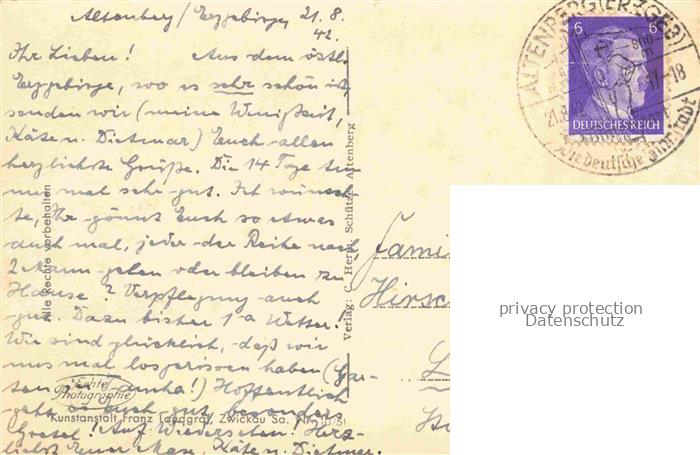 Altenberg / Erzgebirge, 21.8.
42.
Ihr Lieben! Aus dem östl.
Erzgebirge, wo es sehr schön ist,
senden wir (meine Wenigkeit,
Käte u. Dietmar) Euch allen
herzlichste Grüße. Die 14 Tage tun
uns mal sehr gut. Ich wünsch-
te, Ihr gönnt Euch so etwas
auch mal, jeder der Reihe nach,
2 Mann gehen oder bleiben zu
Hause? Verpflegung auch
gut. Dazu bisher 1a Wetter.
Wir sind glücklich, daß wir
uns mal losgerissen haben (Gar-
ten
Hoffentlich
geht es Euch gut, besonders
Gretel! Auf Wiedersehen! Herz-
lichst Euer Max, Käte u. Dietmar.
Alle Rechte vorbehalten
Echte
Photographie
Kunstanstalt Franz Landgraf, Zwickau Sa.
Verlag: C. Herm. Schütze, Altenberg
ALTENBERG (ERZGEB)
21.8.42
17-18
6 6
DEUTSCHES REICH
Fami
Hirsc
privacy protection
Datenschutz